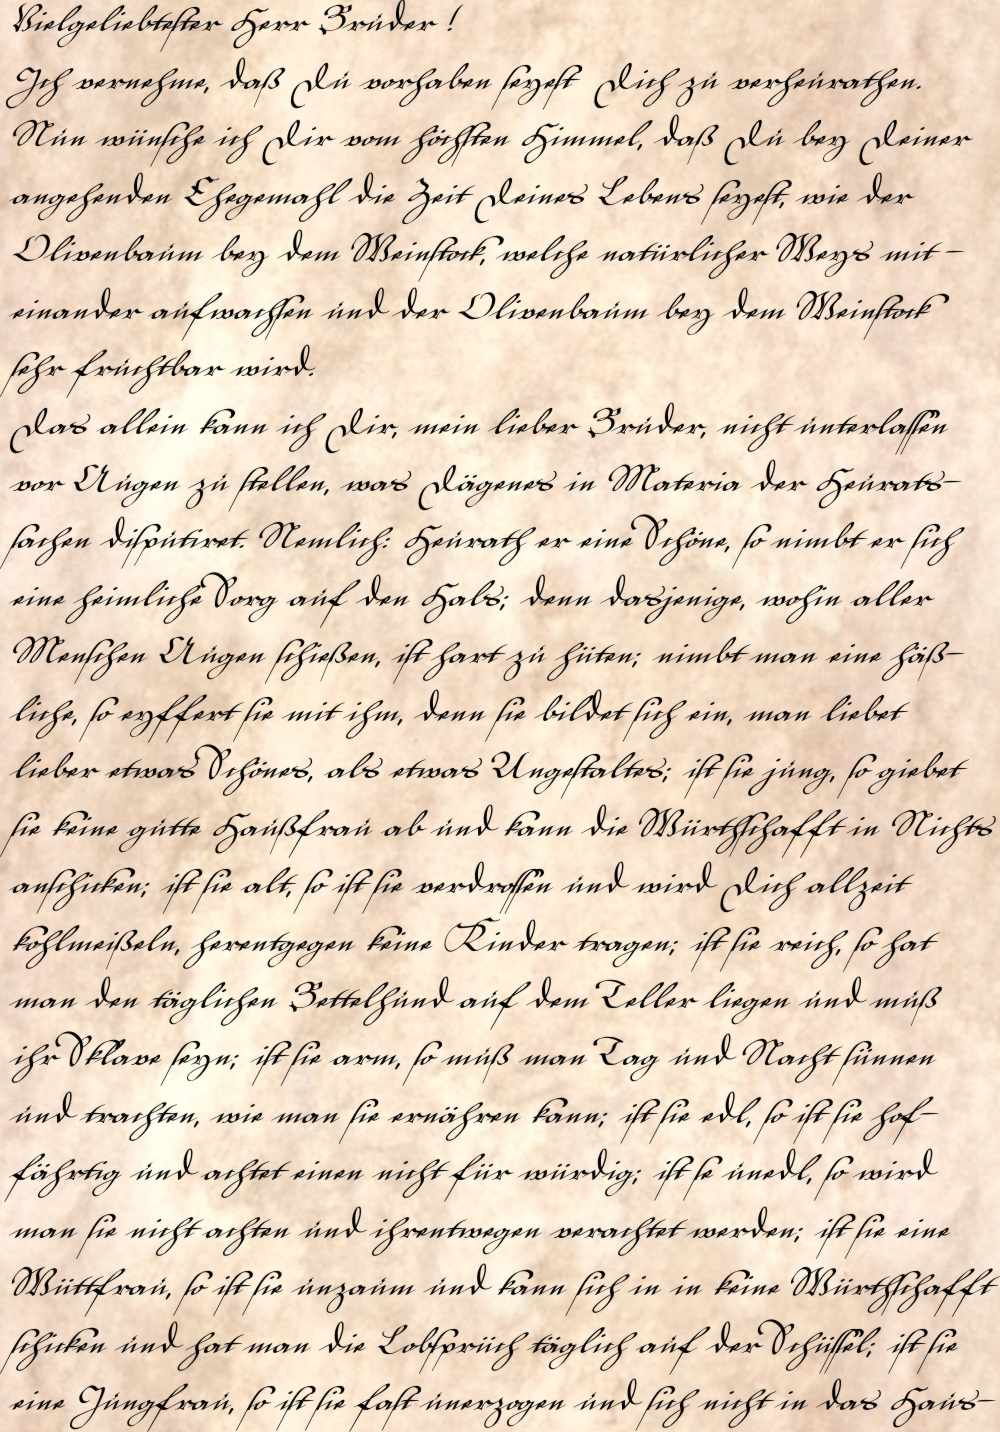 Vielgeliebtester Herr Bruder !
Ich vernehme, daß Du vorhaben seyest Dich zu verheurathen.
Nun wünsche ich Dir vom höchsten Himmel, daß Du bey Deiner
angehenden Ehegemahl die Zeit Deines Lebens seyest, wie der
Olivenbaum bey dem Weinstock, welche natürlicher Weys mit-
einander aufwachsen und der Olivenbaum bey dem Weinstock
sehr fruchtbar wird.
Das allein kann ich Dir, mein lieber Bruder, nicht unterlassen
vor Augen zu stellen, was Dägenes in Materia der Heurats-
sachen disputiret. Nemlich: Heurath er eine Schöne, so nimbt er sich
eine heimliche Sorg auf den Hals; denn dasjenige, wohin aller
Menschen Augen schießen, ist hart zu hüten; nimbt man eine häß-
liche, so eyffert sie mit ihm, denn sie bildet sich ein, man liebet
lieber etwas Schönes, als etwas Ungestaltes; ist sie jung, so giebet
sie keine gutte Haußfrau ab und kann die Würthschafft in Nichts
anschicken; ist sie alt, so ist sie verdrossen und wird Dich allzeit
kohlmeißeln, herentgegen keine Kinder tragen; ist sie reich, so hat
man den täglichen Bettelhund auf dem Teller liegen und muß
ihr Sklave seyn; ist sie arm, so muß man Tag und Nacht sünnen
und trachten, wie man sie ernähren kann; ist sie edl, so ist sie hof-
fährtig und achtet einen nicht für würdig; ist se unedl, so wird
man sie nicht achten und ihrentwegen verachtet werden; ist sie eine
Wüttfrau, so ist sie unzaum und kann sich in in keine Würthschafft
schicken und hat man die Lobsprüch täglich auf der Schüssel; ist sie
eine Jungfrau, so ist sie fast unerzogen und sich nicht in das Haus-